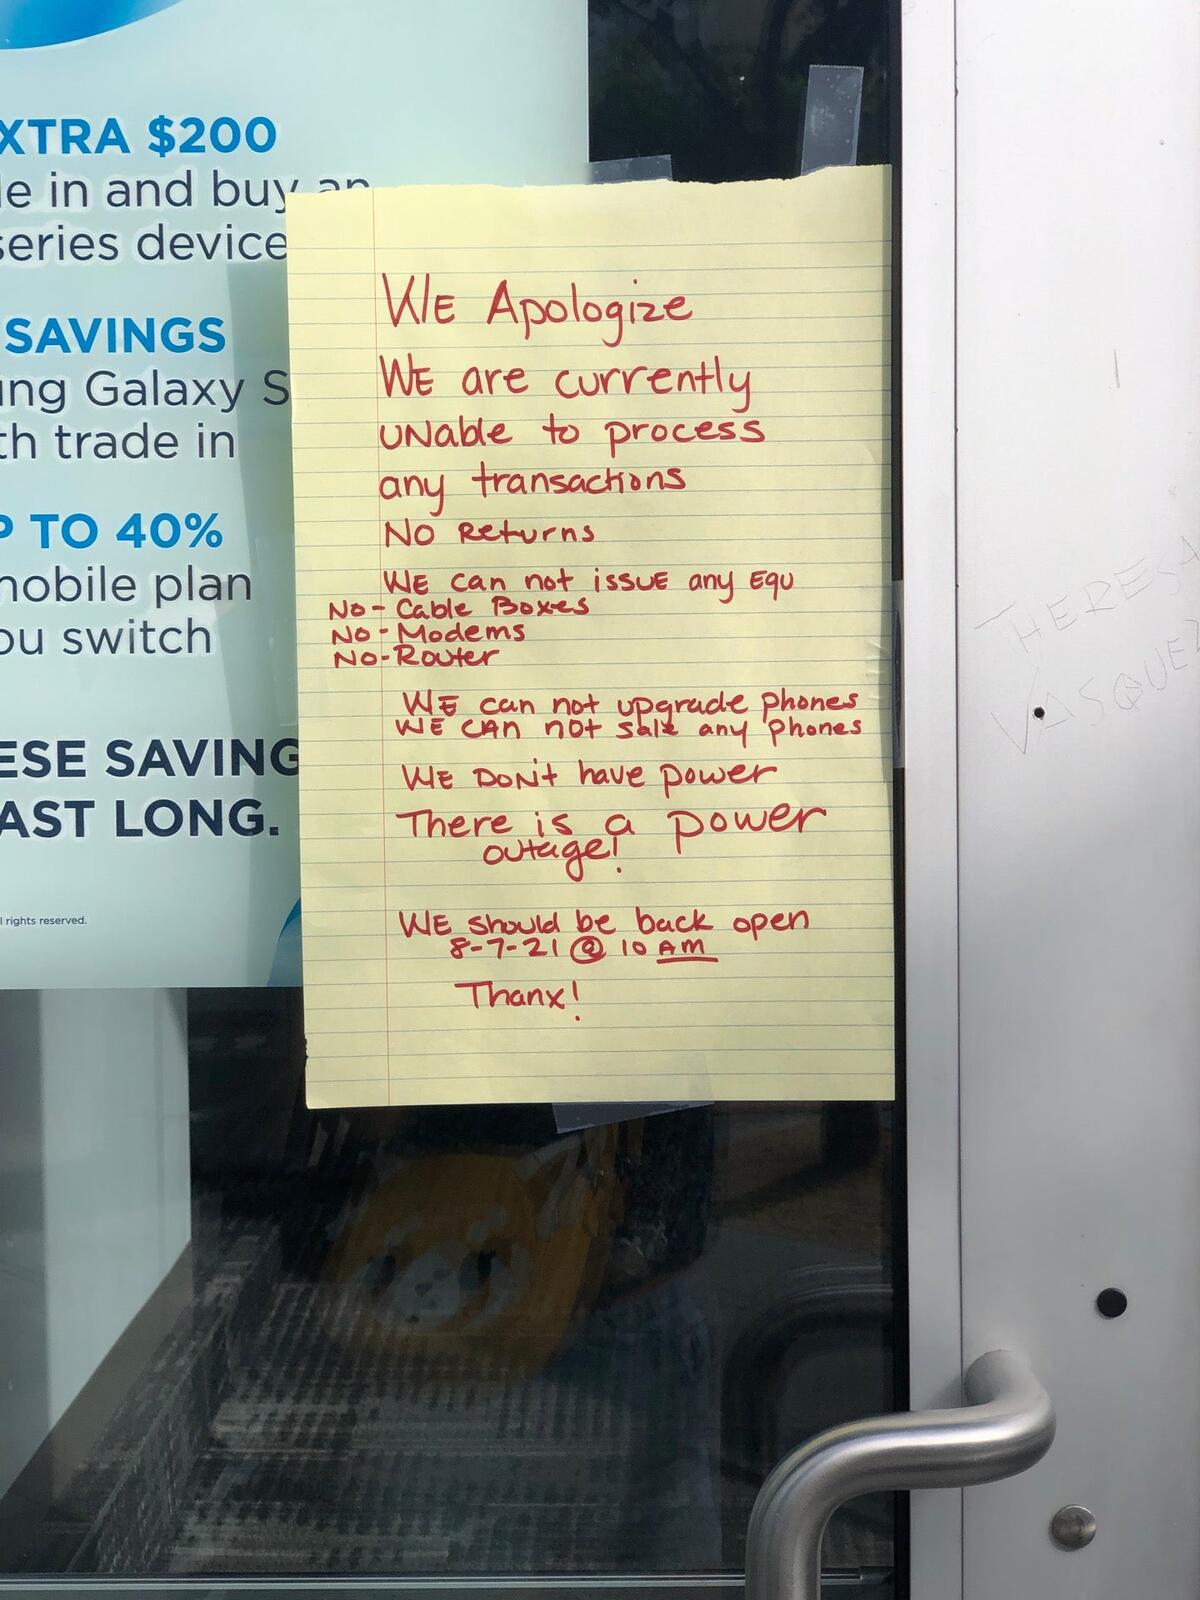 XTRA $200
de in and buy an
series device
SAVINGS
ung Galaxy S
th trade in
P TO 40%
mobile plan
ou switch
ESE SAVING
AST LONG.
l rights reserved.
WE Apologize
WE are currently
UNable to process
any transactions
NO Returns
WE can not issue any Equ
No- Cable Boxes
No- Modems
No-Router
WE can not upgrade phones
WE CAN not sale any phones
WE DON't have power
There is a power
outage!
WE should be back open
8-7-21 @ 10 AM
Thanx!
THERESA
VASQUEZ